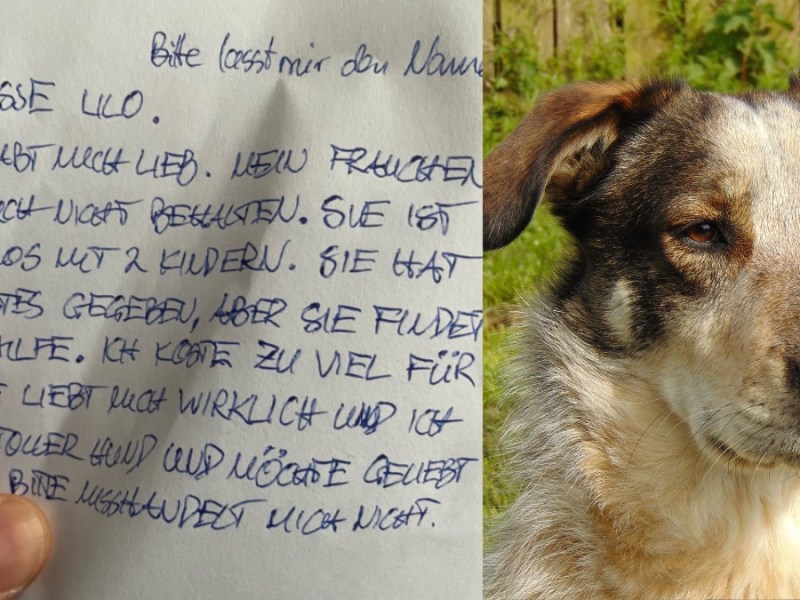 Bitte lasst mir den Name
SSE LILO.
ABT MICH LIEB. MEIN FRAUCHEN
CH NICHT BEHALTEN. SIE IST
OS MIT 2 KINDERN. SIE HAT
TES GEGEBEN, ABER SIE FINDET
ILFE. ICH KOSTE ZU VIEL FÜR
E LIEBT MICH WIRKLICH UND ICH
TOLLER HUND UND MÖCHTE GELIEBT
BITTE MISSHANDELT MICH NICHT.